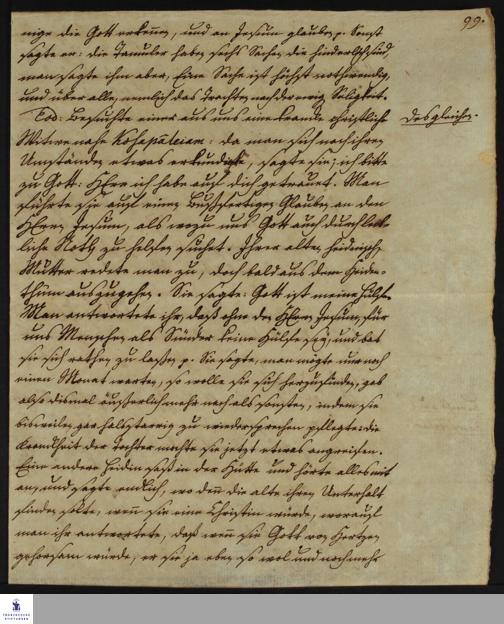 99.
nige die Gott erkennen, und an Jesum glauben p. Sonst
sagte er: die Tamuler haben sechs Sachen, die hinderlich sind,
man sagte ihm aber, Eine Sache ist höchst nothwendig,
und über alle, nemlich das Trachten nach der ewig Seligkeit.
Eod: besuchte einer aus uns eine krancke christliche
Desgleichen.
Witwe nahe Kosapaleiam: da man sich nach ihren
Umständen etwas erkundigte, sagte sie; ich bitte
zu Gott: HErr ich habe auf dich getrauet. Man
führte sie auf einen bußfertigen Glauben an den
HErrn Jesum, als wozu uns Gott auch durch leib-
liche Noth zu helfen suchet. Ihrer alten heidnischen
Mutter redete man zu, doch bald aus dem Heiden-
thum auszugehen. Sie sagte: Gott ist meine Hülfe.
Man antwortete ihr, daß ohne den HErrn Jesum, für
uns Menschen als Sünder keine Hülfe sey, und bat
sie sich rathen zu lassen p. Sie sagte, man mögte nur noch
einen Monat warten, so wolle sie sich herzufinden, gab
also dismal äusserlich mehr nach als sonsten, indem sie
bisweilen gar halsstarrig zu wiedersprechen pflegte: die
Kranckheit der Tochter machte sie jetzt etwas angreifen.
Eine andere Heidin saß in der Hütte und hörte alles mit
an, und sagte endlich, wo denn die alte ihren Unterhalt
finden solte, wenn sie eine Christin würde, worauf
man ihr antwortete, daß wenn sie Gott von Hertzen
gehorsam würde, er sie ja eben so wol und noch mehr
FRANCKESCHE STIFTUNGEN